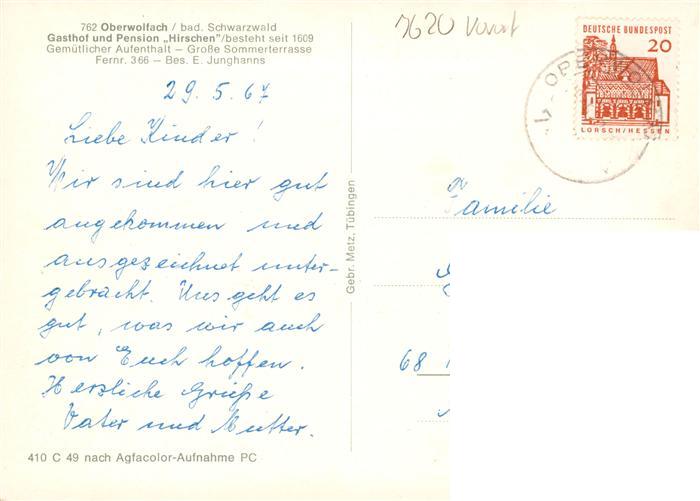 762 Oberwolfach / bad. Schwarzwald
Gasthof und Pension „Hirschen"/besteht seit 1609
Gemütlicher Aufenthalt – Große Sommerterrasse
Fernr. 366 – Bes. E. Junghanns
7620 Vorort
DEUTSCHE BUNDESPOST
20
LORSCH/HESSEN
29. 5. 67
Liebe Kinder!
Wir sind hier gut
angekommen und
ausgezeichnet unter-
gebracht. Uns geht es
gut, was wir auch
von Euch hoffen.
Herzliche Grüße
Vater und Mutter.
Gebr. Metz, Tübingen
Familie
68
410 C 49 nach Agfacolor-Aufnahme PC